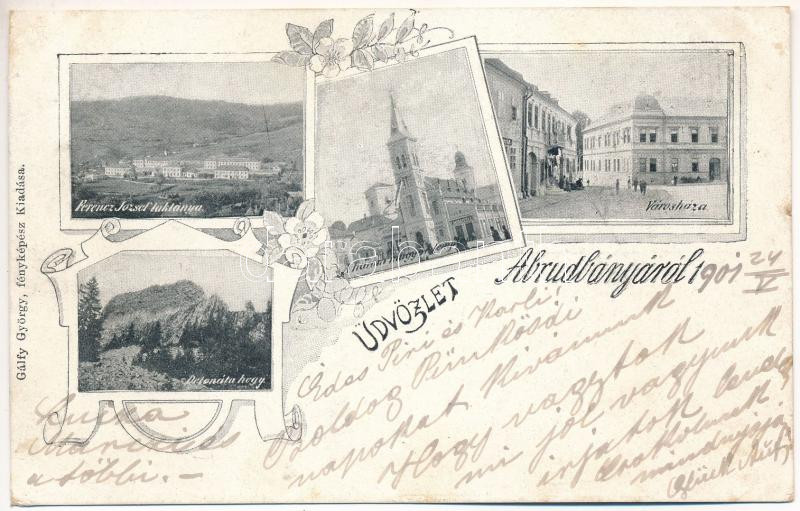 Gálfy György, fényképész Kiadása.
Ferencz József laktánya.
Városháza
Detonáta hegy.
ÜDVÖZLET
Abrudbányáról 1901 24/V
Édes Piri és Karli!
Boldog Pünkösdi
napokat Kivánunk
Hogy vagytok
mi jól vagyunk
irjatok
csokolunk
a többi. —